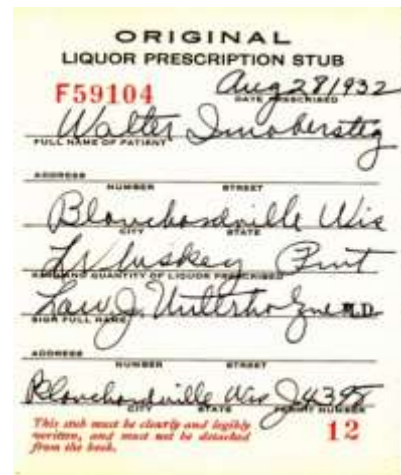 ORIGINAL
LIQUOR PRESCRIPTION STUB
F59104 Aug 28 1932
DATE PRESCRIBED
Walter Imobersteg
FULL NAME OF PATIENT
ADDRESS
NUMBER STREET
Blanchardville Wis
CITY STATE
Whiskey Pint
KIND AND QUANTITY OF LIQUOR PRESCRIBED
J. M.D.
SIGN FULL NAME
ADDRESS
NUMBER STREET
Blanchardville Wis J4398
CITY STATE PERMIT NUMBER
This stub must be clearly and legibly
written, and must not be detached
from the book.
12